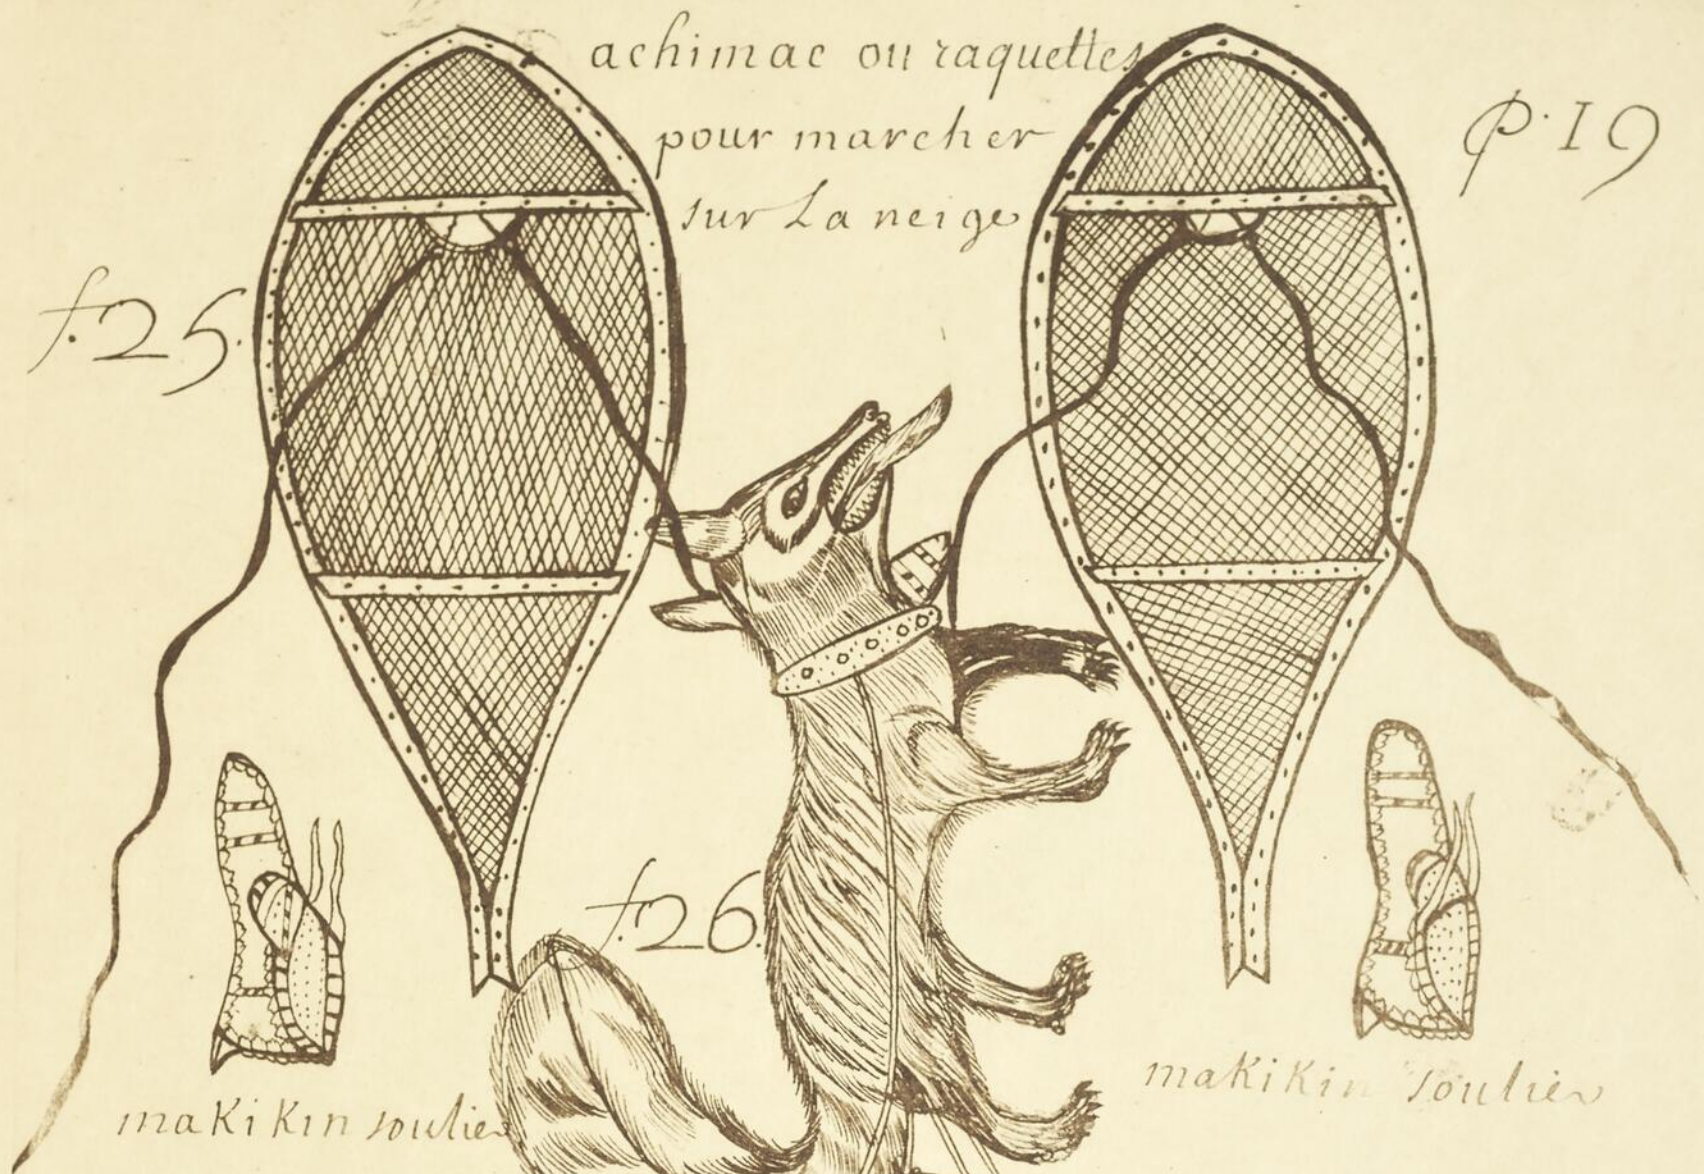 achimac ou raquettes
pour marcher
sur La neige
P. 19
f. 25.
f. 26.
makikin soulier
makikin soulier